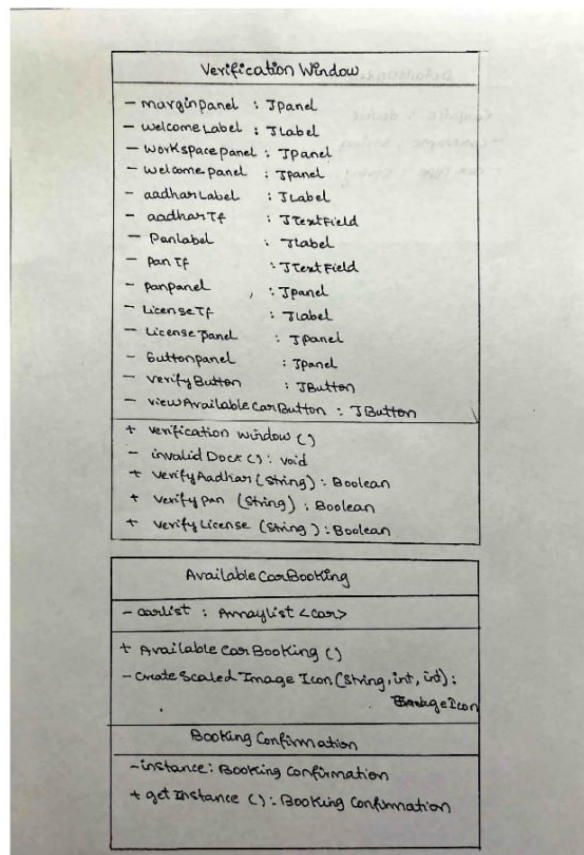 Verification Window
- marginpanel : JPanel
- welcomeLabel : JLabel
- workspacepanel : JPanel
- welcomepanel : JPanel
- aadharLabel : JLabel
- aadharTf : JTextField
- PanLabel : JLabel
- panTf : JTextField
- panpanel : Jpanel
- LicenseTf : JLabel
- License panel : JPanel
- buttonpanel : JPanel
- verifyButton : JButton
- viewAvailableCarButton : JButton
+ verification window ()
- invalidDock () : void
+ verifyAadhar (String) : Boolean
+ verifypan (String) : Boolean
+ verify License (String) : Boolean
AvailableCarBooking
- carlist : Arraylist <car>
+ Available Car Booking ()
- Create Scaled Image Icon (String, int, int) :
ImageIcon
Booking Confirmation
- instance : Booking Confirmation
+ getInstance () : Booking Confirmation